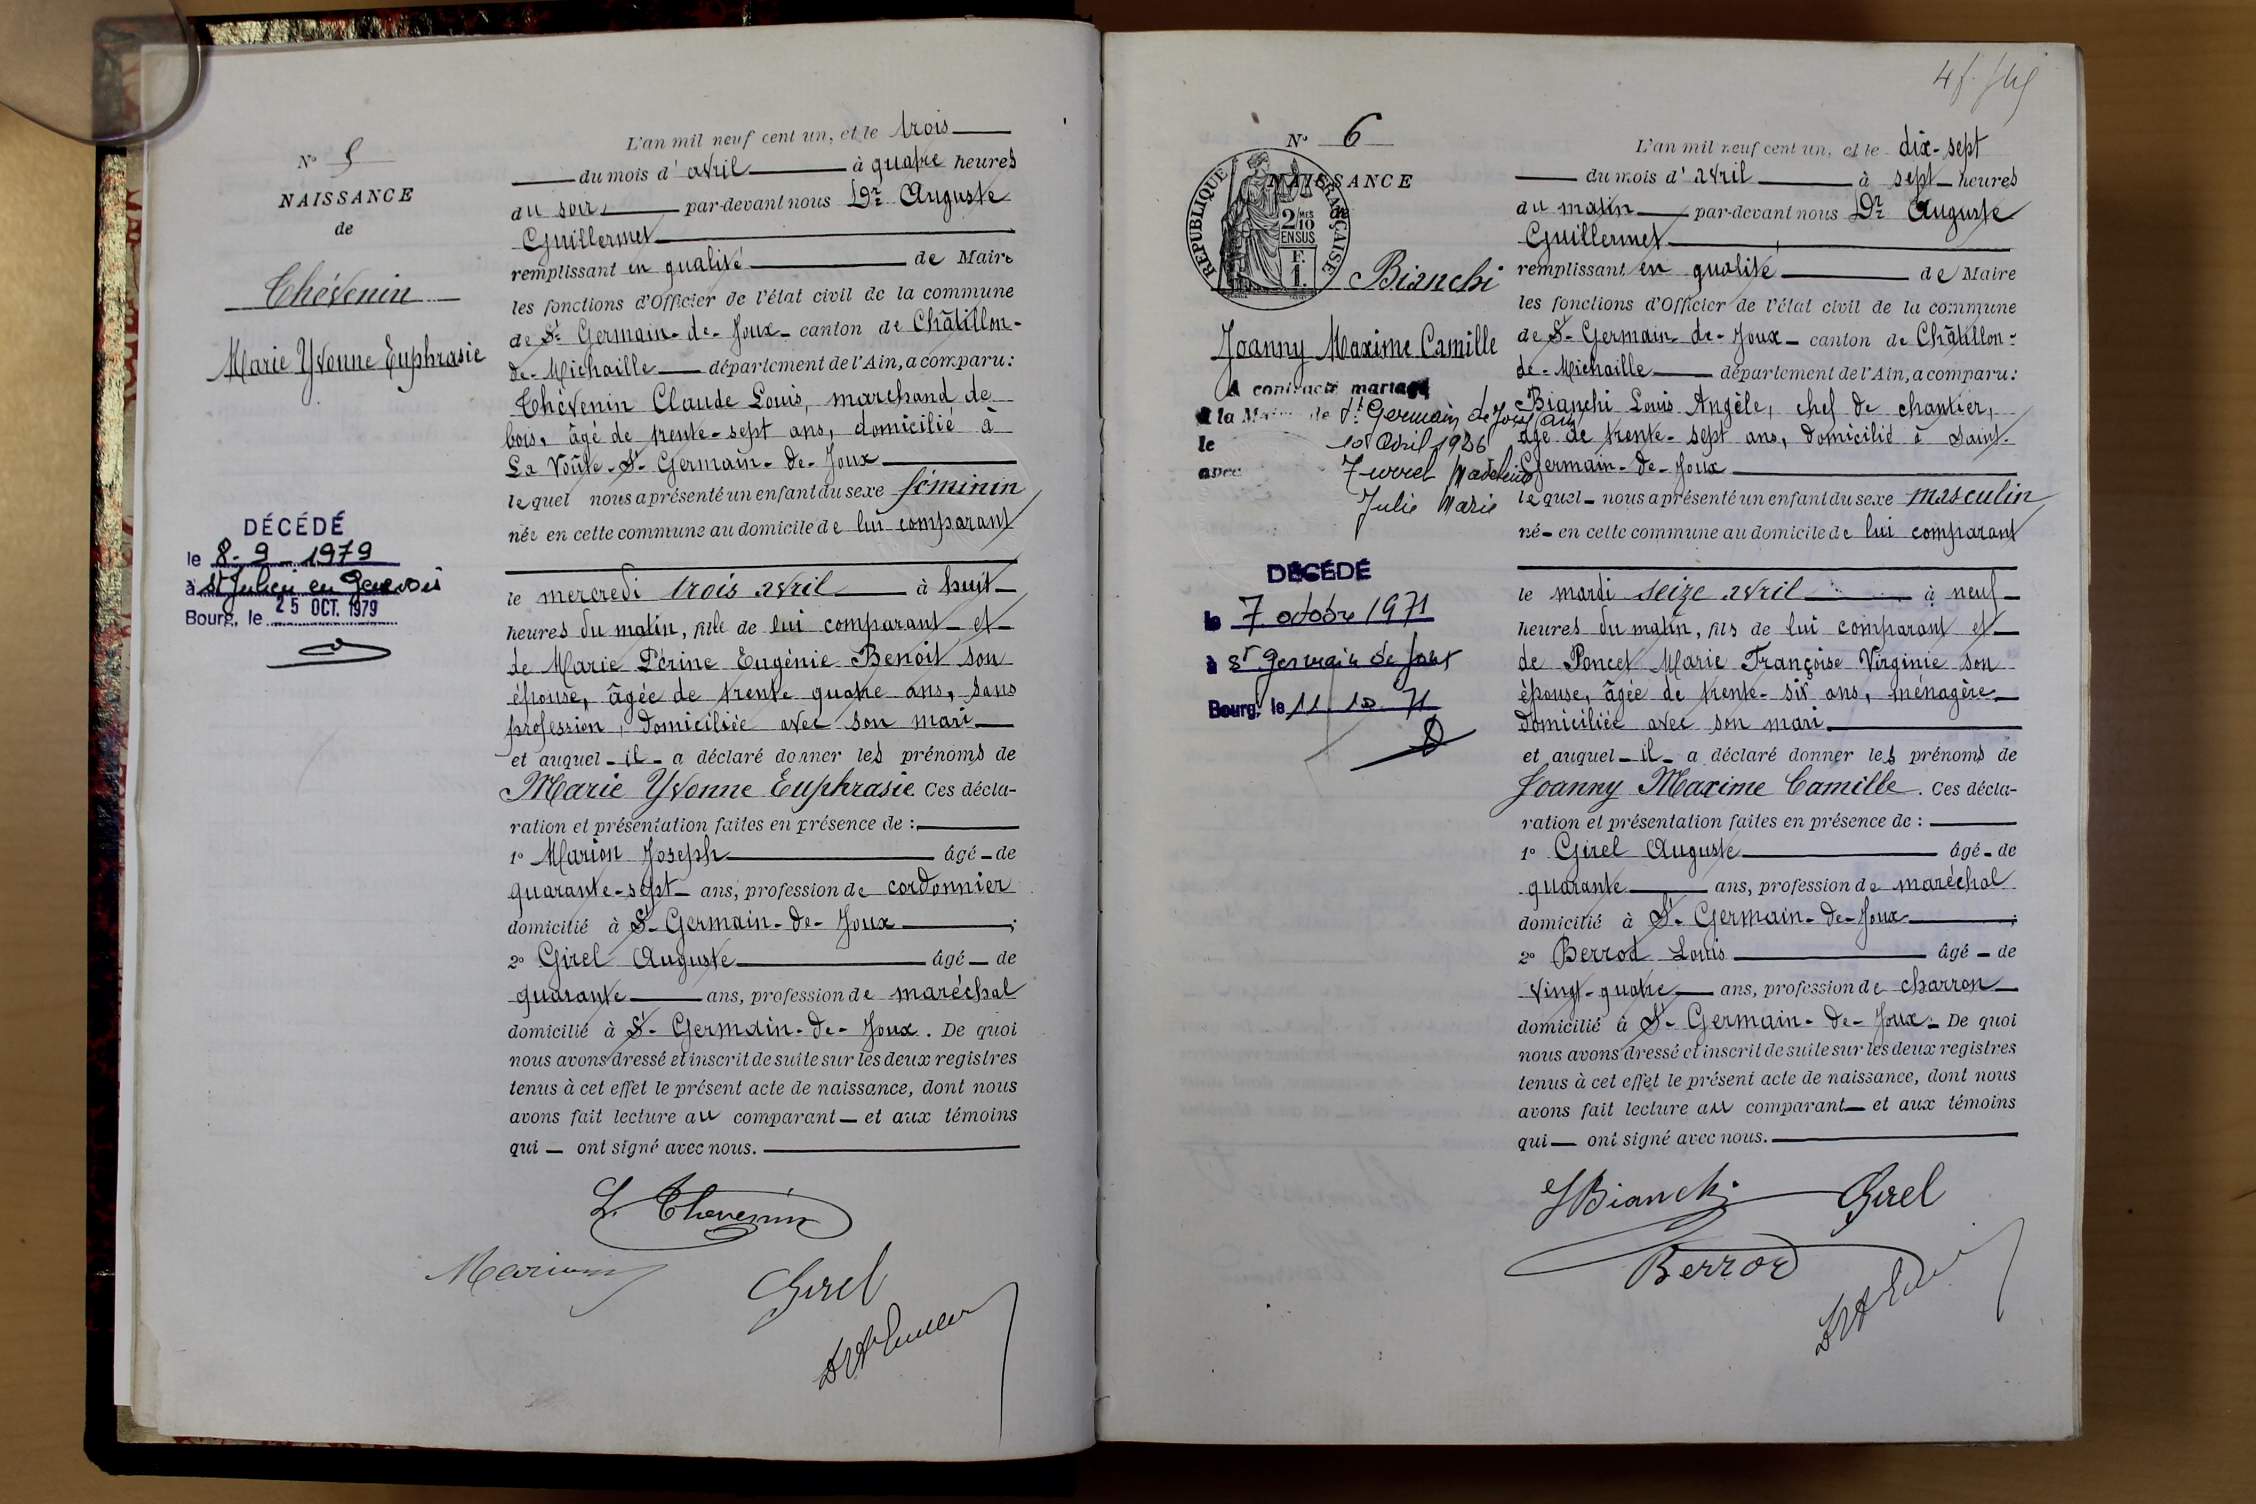 N° 5
NAISSANCE
de
Thévenin
Marie Yvonne Euphrasie
DÉCÉDÉ
le 8-9-1979
à St Julien en Genevois
Bourg, le 25 OCT. 1979
L'an mil neuf cent un, et le trois
du mois d'avril à quatre heures
du soir par-devant nous Dr Auguste
Guillermet
remplissant en qualité de Maire
les fonctions d'Officier de l'état civil de la commune
de St Germain-de-Joux canton de Châtillon-
de-Michaille département de l'Ain, a comparu:
Thévenin Claude Louis, marchand de
bois, âgé de trente-sept ans, domicilié à
La Voûte-St Germain-de-Joux
lequel nous a présenté un enfant du sexe féminin
née en cette commune au domicile de lui comparant
le mercredi trois avril à huit
heures du matin, fille de lui comparant et
de Marie Périne Eugénie Benoit son
épouse, âgée de trente quatre ans, sans
profession, domiciliée avec son mari
et auquel il a déclaré donner les prénoms de
Marie Yvonne Euphrasie. Ces décla-
ration et présentation faites en présence de :
1° Marion Joseph âgé de
quarante-sept ans, profession de cordonnier
domicilié à St Germain-de-Joux ;
2° Girel Auguste âgé de
quarante ans, profession de maréchal
domicilié à St Germain-de-Joux. De quoi
nous avons dressé et inscrit de suite sur les deux registres
tenus à cet effet le présent acte de naissance, dont nous
avons fait lecture au comparant et aux témoins
qui ont signé avec nous.
L. Thévenin
Marion
Girel
N° 6
NAISSANCE
de
RÉPUBLIQUE FRANÇAISE
2/10 MES
EN SUS
F.
1.
Bianchi
Joanny Maxime Camille
A contracté mariage
à la Mairie de St Germain de Joux (Ain)
le 10 avril 1926
avec
Julie Marie
DÉCÉDÉ
le 7 octobre 1971
à St Germain de Joux
Bourg, le 11.10.71
L'an mil neuf cent un, et le dix-sept
du mois d'avril à sept heures
du matin par-devant nous Dr Auguste
Guillermet
remplissant en qualité de Maire
les fonctions d'Officier de l'état civil de la commune
de St Germain de-Joux canton de Châtillon-
de-Michaille département de l'Ain, a comparu:
Bianchi Louis Angèle, chef de chantier,
âgé de trente-sept ans, domicilié à Saint-
Germain-de-Joux
lequel nous a présenté un enfant du sexe masculin
né en cette commune au domicile de lui comparant
le mardi seize avril à neuf
heures du matin, fils de lui comparant et
de Poncet Marie Françoise Virginie son
épouse, âgée de trente-six ans, ménagère
domiciliée avec son mari
et auquel il a déclaré donner les prénoms de
Joanny Maxime Camille. Ces décla-
ration et présentation faites en présence de :
1° Girel Auguste âgé de
quarante ans, profession de maréchal
domicilié à St Germain-de-Joux ;
2° Berrod Louis âgé de
vingt-quatre ans, profession de charron
domicilié à St Germain-de-Joux. De quoi
nous avons dressé et inscrit de suite sur les deux registres
tenus à cet effet le présent acte de naissance, dont nous
avons fait lecture au comparant et aux témoins
qui ont signé avec nous.
Bianchi Girel
Berrod